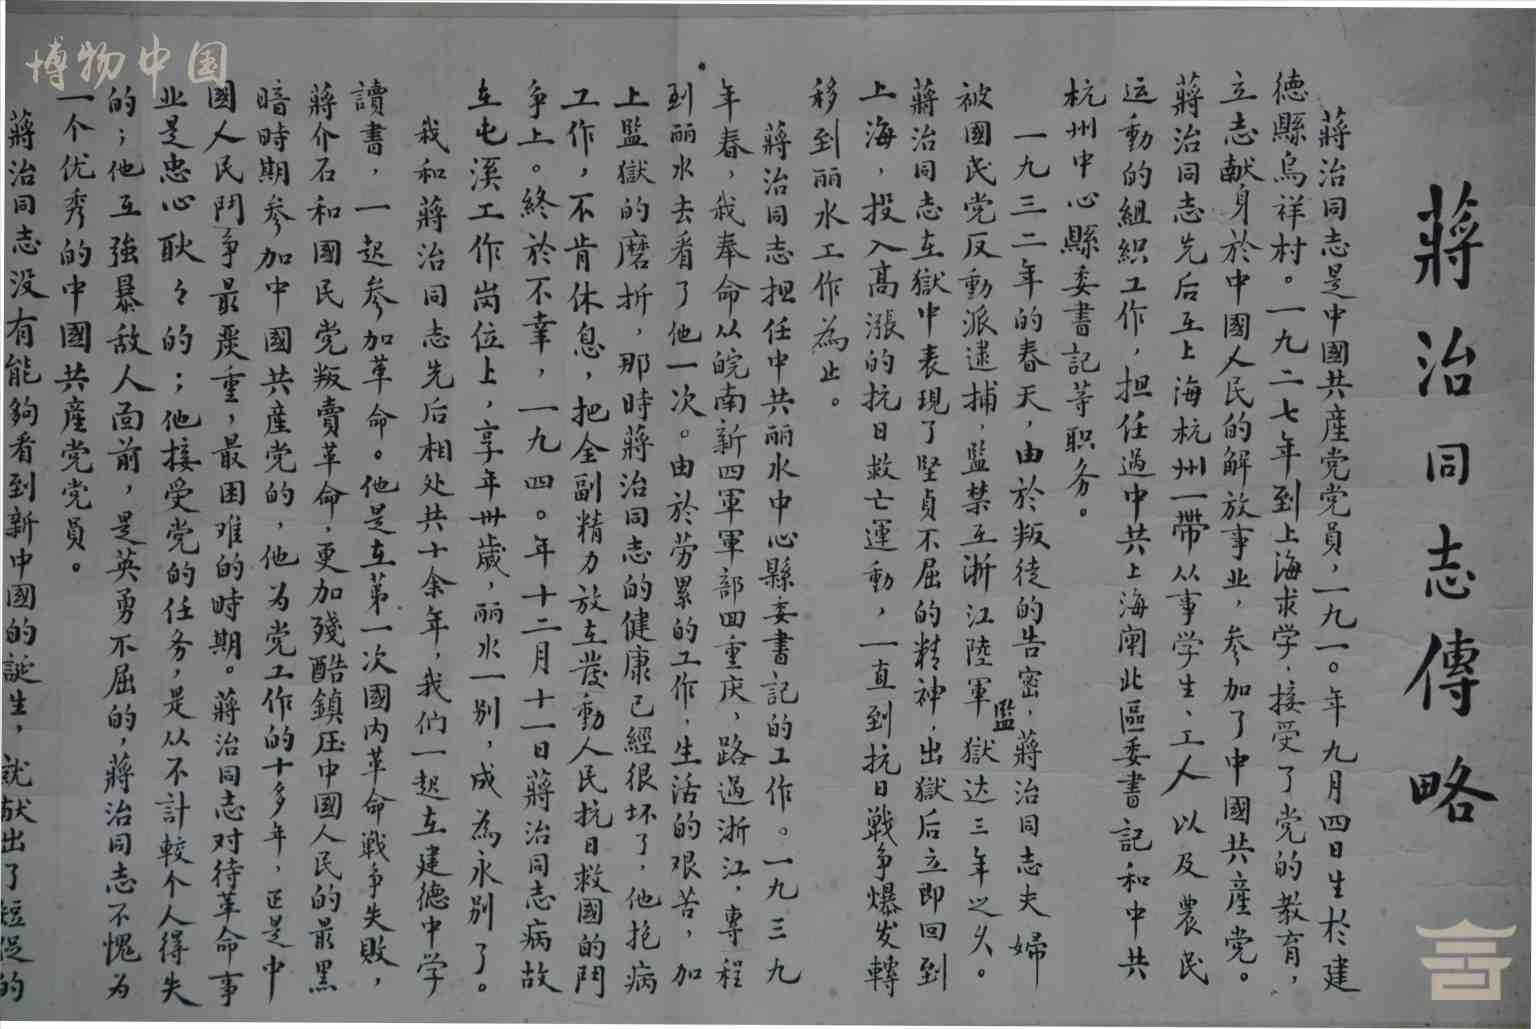 博物中国
蔣治同志傳略
蔣治同志是中國共產党党員，一九一〇年九月四日生於建
德縣烏祥村。一九二七年到上海求学，接受了党的教育，
立志献身於中國人民的解放事业，参加了中國共產党。
蔣治同志先后在上海杭州一帶从事学生、工人以及農民
运動的組織工作，担任過中共上海闸北區委書記和中共
杭州中心縣委書記等职务。
一九三二年的春天，由於叛徒的告密，蔣治同志夫婦
被國民党反動派逮捕，監禁在浙江陸軍監獄达三年之久。
蔣治同志在獄中表現了堅貞不屈的精神，出獄后立即回到
上海，投入高漲的抗日救亡運動，一直到抗日戰争爆发轉
移到丽水工作為止。
蔣治同志担任中共丽水中心縣委書記的工作。一九三九
年春，我奉命从皖南新四軍軍部回重庆，路過浙江，專程
到丽水去看了他一次。由於劳累的工作，生活的艰苦，加
上監獄的磨折，那時蔣治同志的健康已經很坏了，他抱病
工作，不肯休息，把全副精力放在發動人民抗日救國的鬥
争上。終於不幸，一九四〇年十二月十一日蔣治同志病故
在屯溪工作岗位上，享年卅歲，丽水一别，成為永别了。
我和蔣治同志先后相处共十余年，我们一起在建德中学
讀書，一起参加革命。他是在第一次國内革命戰争失敗，
蔣介石和國民党叛賣革命，更加殘酷鎮压中國人民的最黑
暗時期参加中國共產党的，他为党工作的十多年，正是中
國人民鬥争最嚴重，最困难的時期。蔣治同志对待革命事
业是忠心耿々的；他接受党的任务，是从不計較个人得失
的；他在強暴敌人面前，是英勇不屈的，蔣治同志不愧为
一个优秀的中國共產党党員。
蔣治同志没有能夠看到新中國的誕生，就献出了短促的